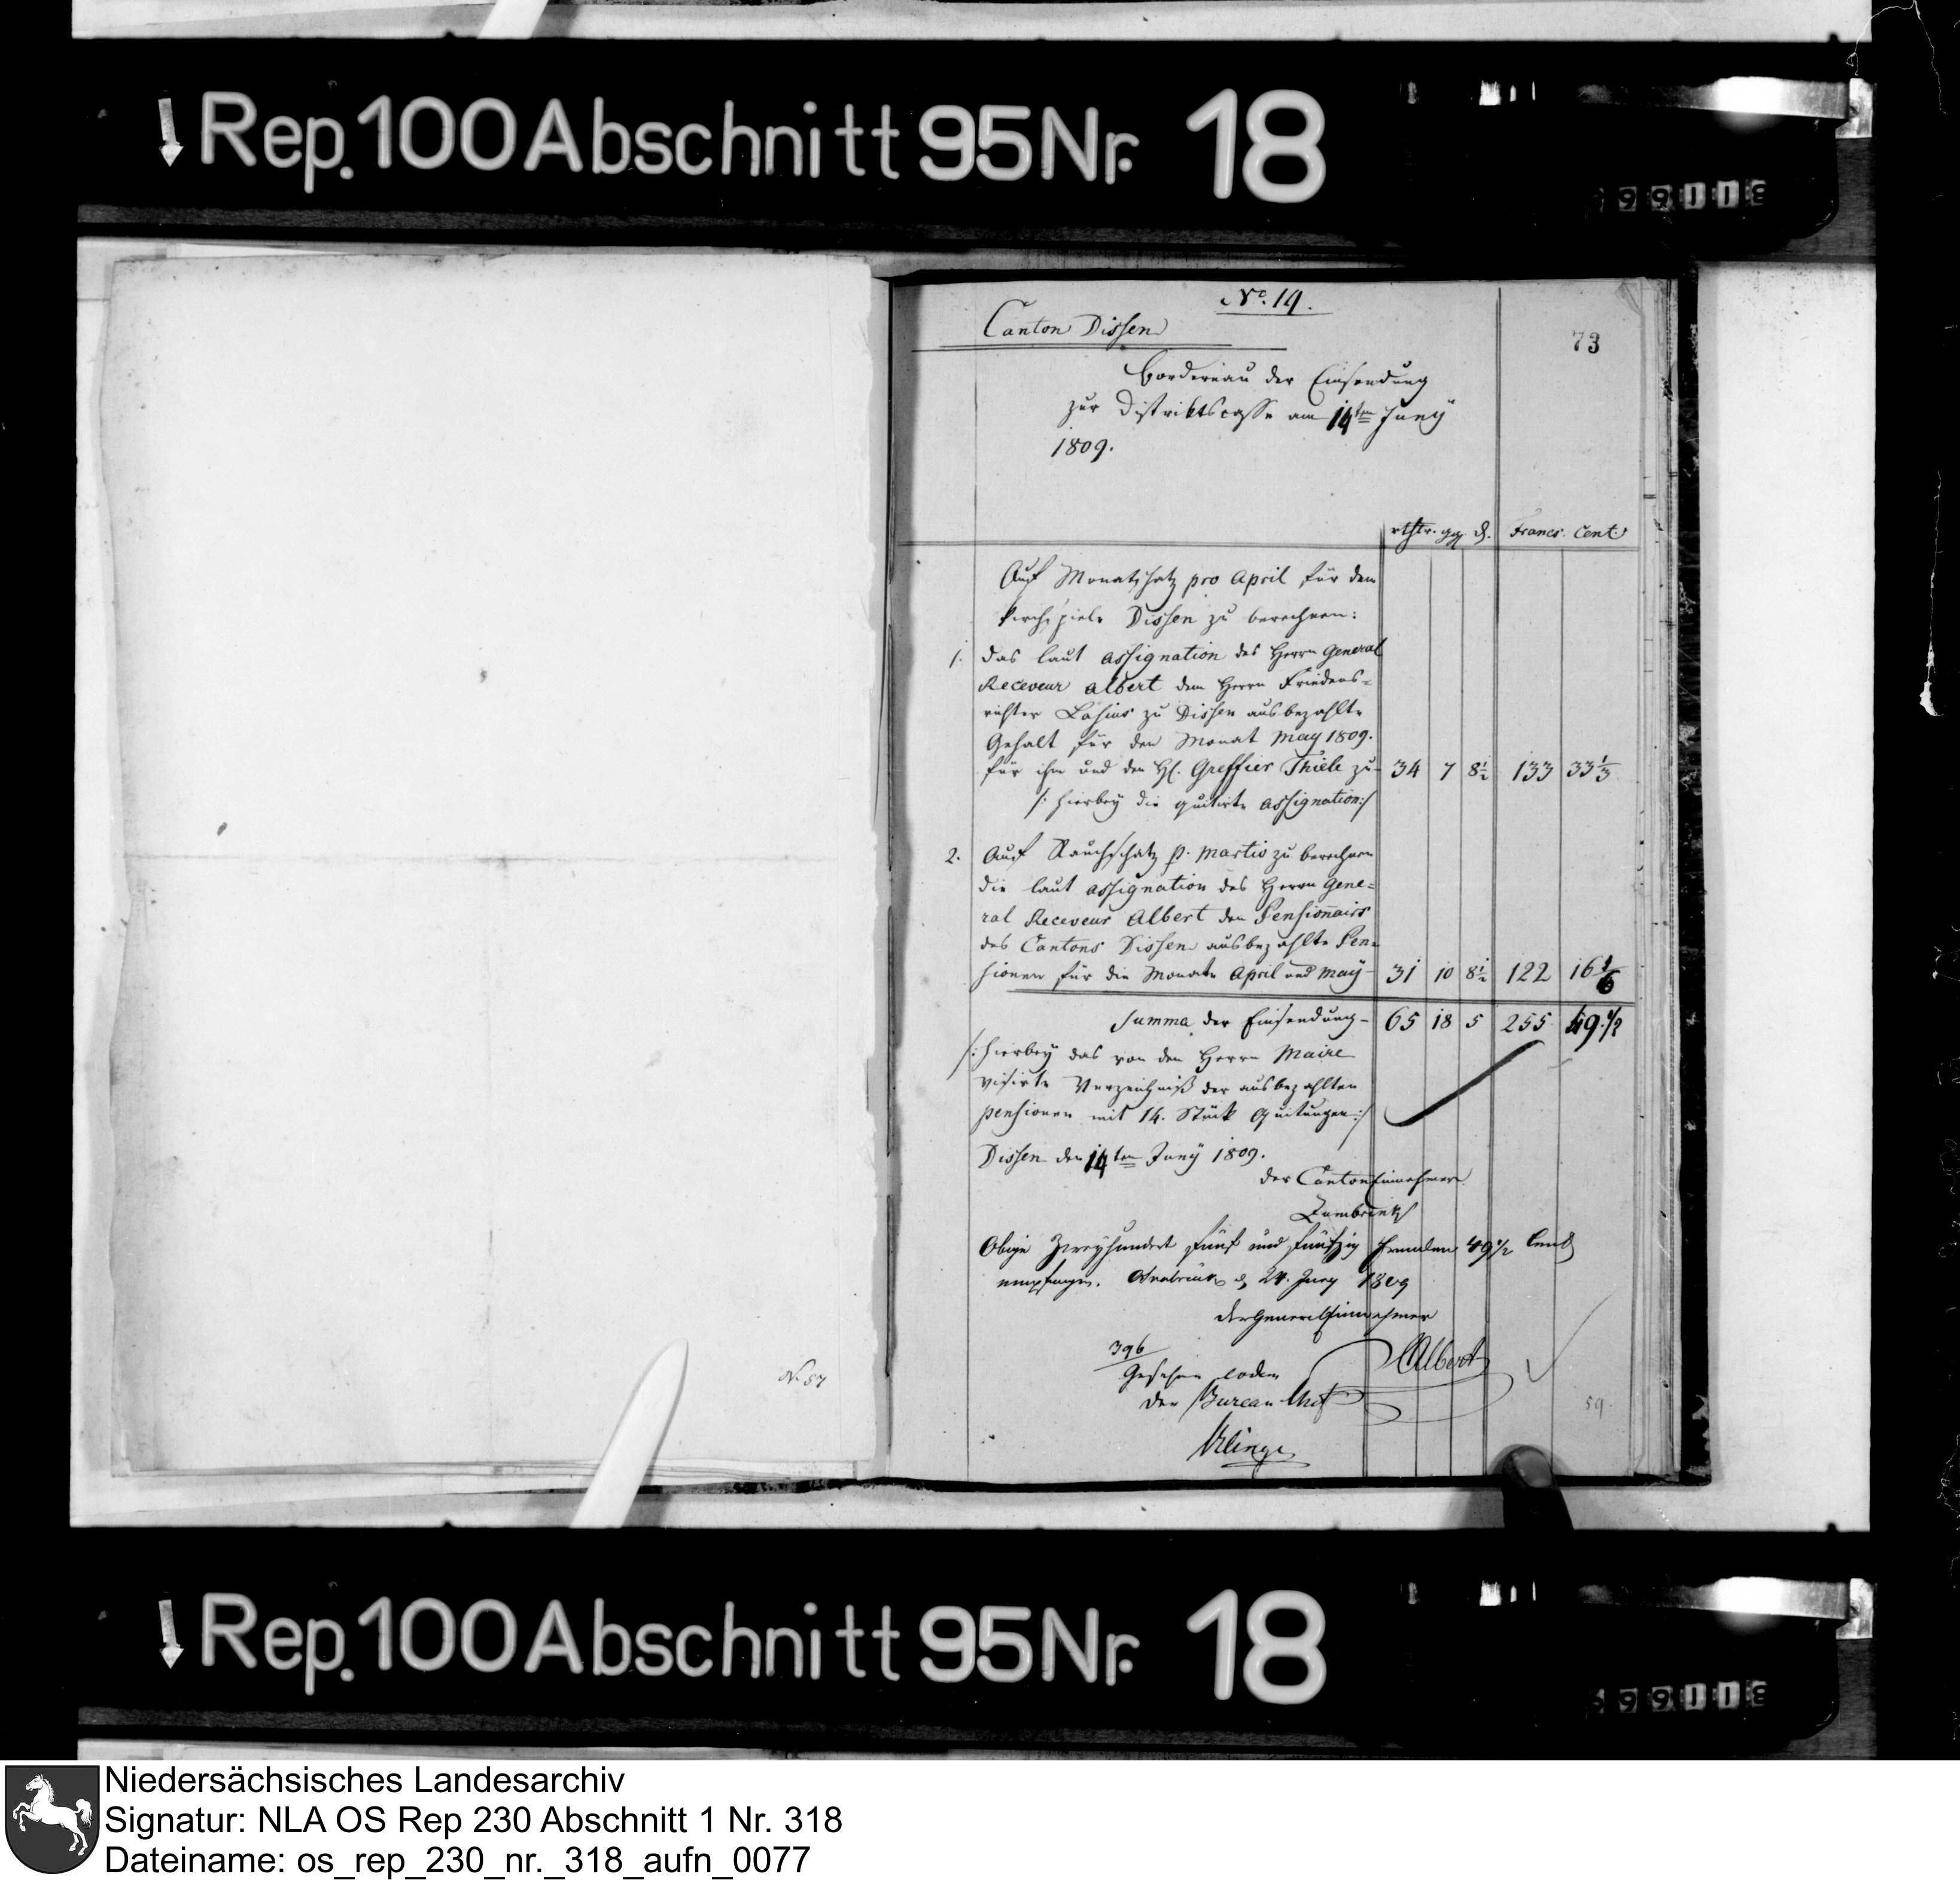 Rep. 100 Abschnitt 95 Nr. 18
99118
No. 19.
Canton Dissen
73
Bordereau der Einsendung
zur Distriktscasse am 14ten Juny
1809.
rthlr. gg. d. Francs. Cent.
Auf Monatschatz pro April für dem
Kirchspiele Dissen zu berechnen:
1. das laut assignation des Herrn General
Receveur Albert dem Herrn Friedens-
richter Lasius zu Dissen ausbezahlte
Gehalt für den Monat May 1809.
für ihm und den H. Greffier Thiele zu- 34 7 8½ 133 33⅓
/: hierbey die quitirte assignation:/
2. Auf Rauchschatz p. Martio zu berechnen
die laut assignation des Herrn Gene=
ral Receveur Albert den Pensionairs
des Cantons Dissen ausbezahlte Pen=
sionen für die Monate April und May- 31 10 8½ 122 16 1/6
Summa der Einsendung- 65 18 5 255 49 ½
/: hierbey das von dem Herrn Maire
visirte Verzeichniß der ausbezahlten
pensionen mit 14. Stük Quitungen:/
Dissen den 14ten Juny 1809.
der Canton Einnehmer
Obige Zweyhundert fünf und funfzig Franken 49½ Cent
empfangen. Osnabrück d. 24. Juny 1809
der General Einnehmer
Albert
396
Gesehen eodem
Der Bureau Chef
No 57
59.
Rep. 100 Abschnitt 95 Nr. 18
99118
Niedersächsisches Landesarchiv
Signatur: NLA OS Rep 230 Abschnitt 1 Nr. 318
Dateiname: os_rep_230_nr._318_aufn_0077